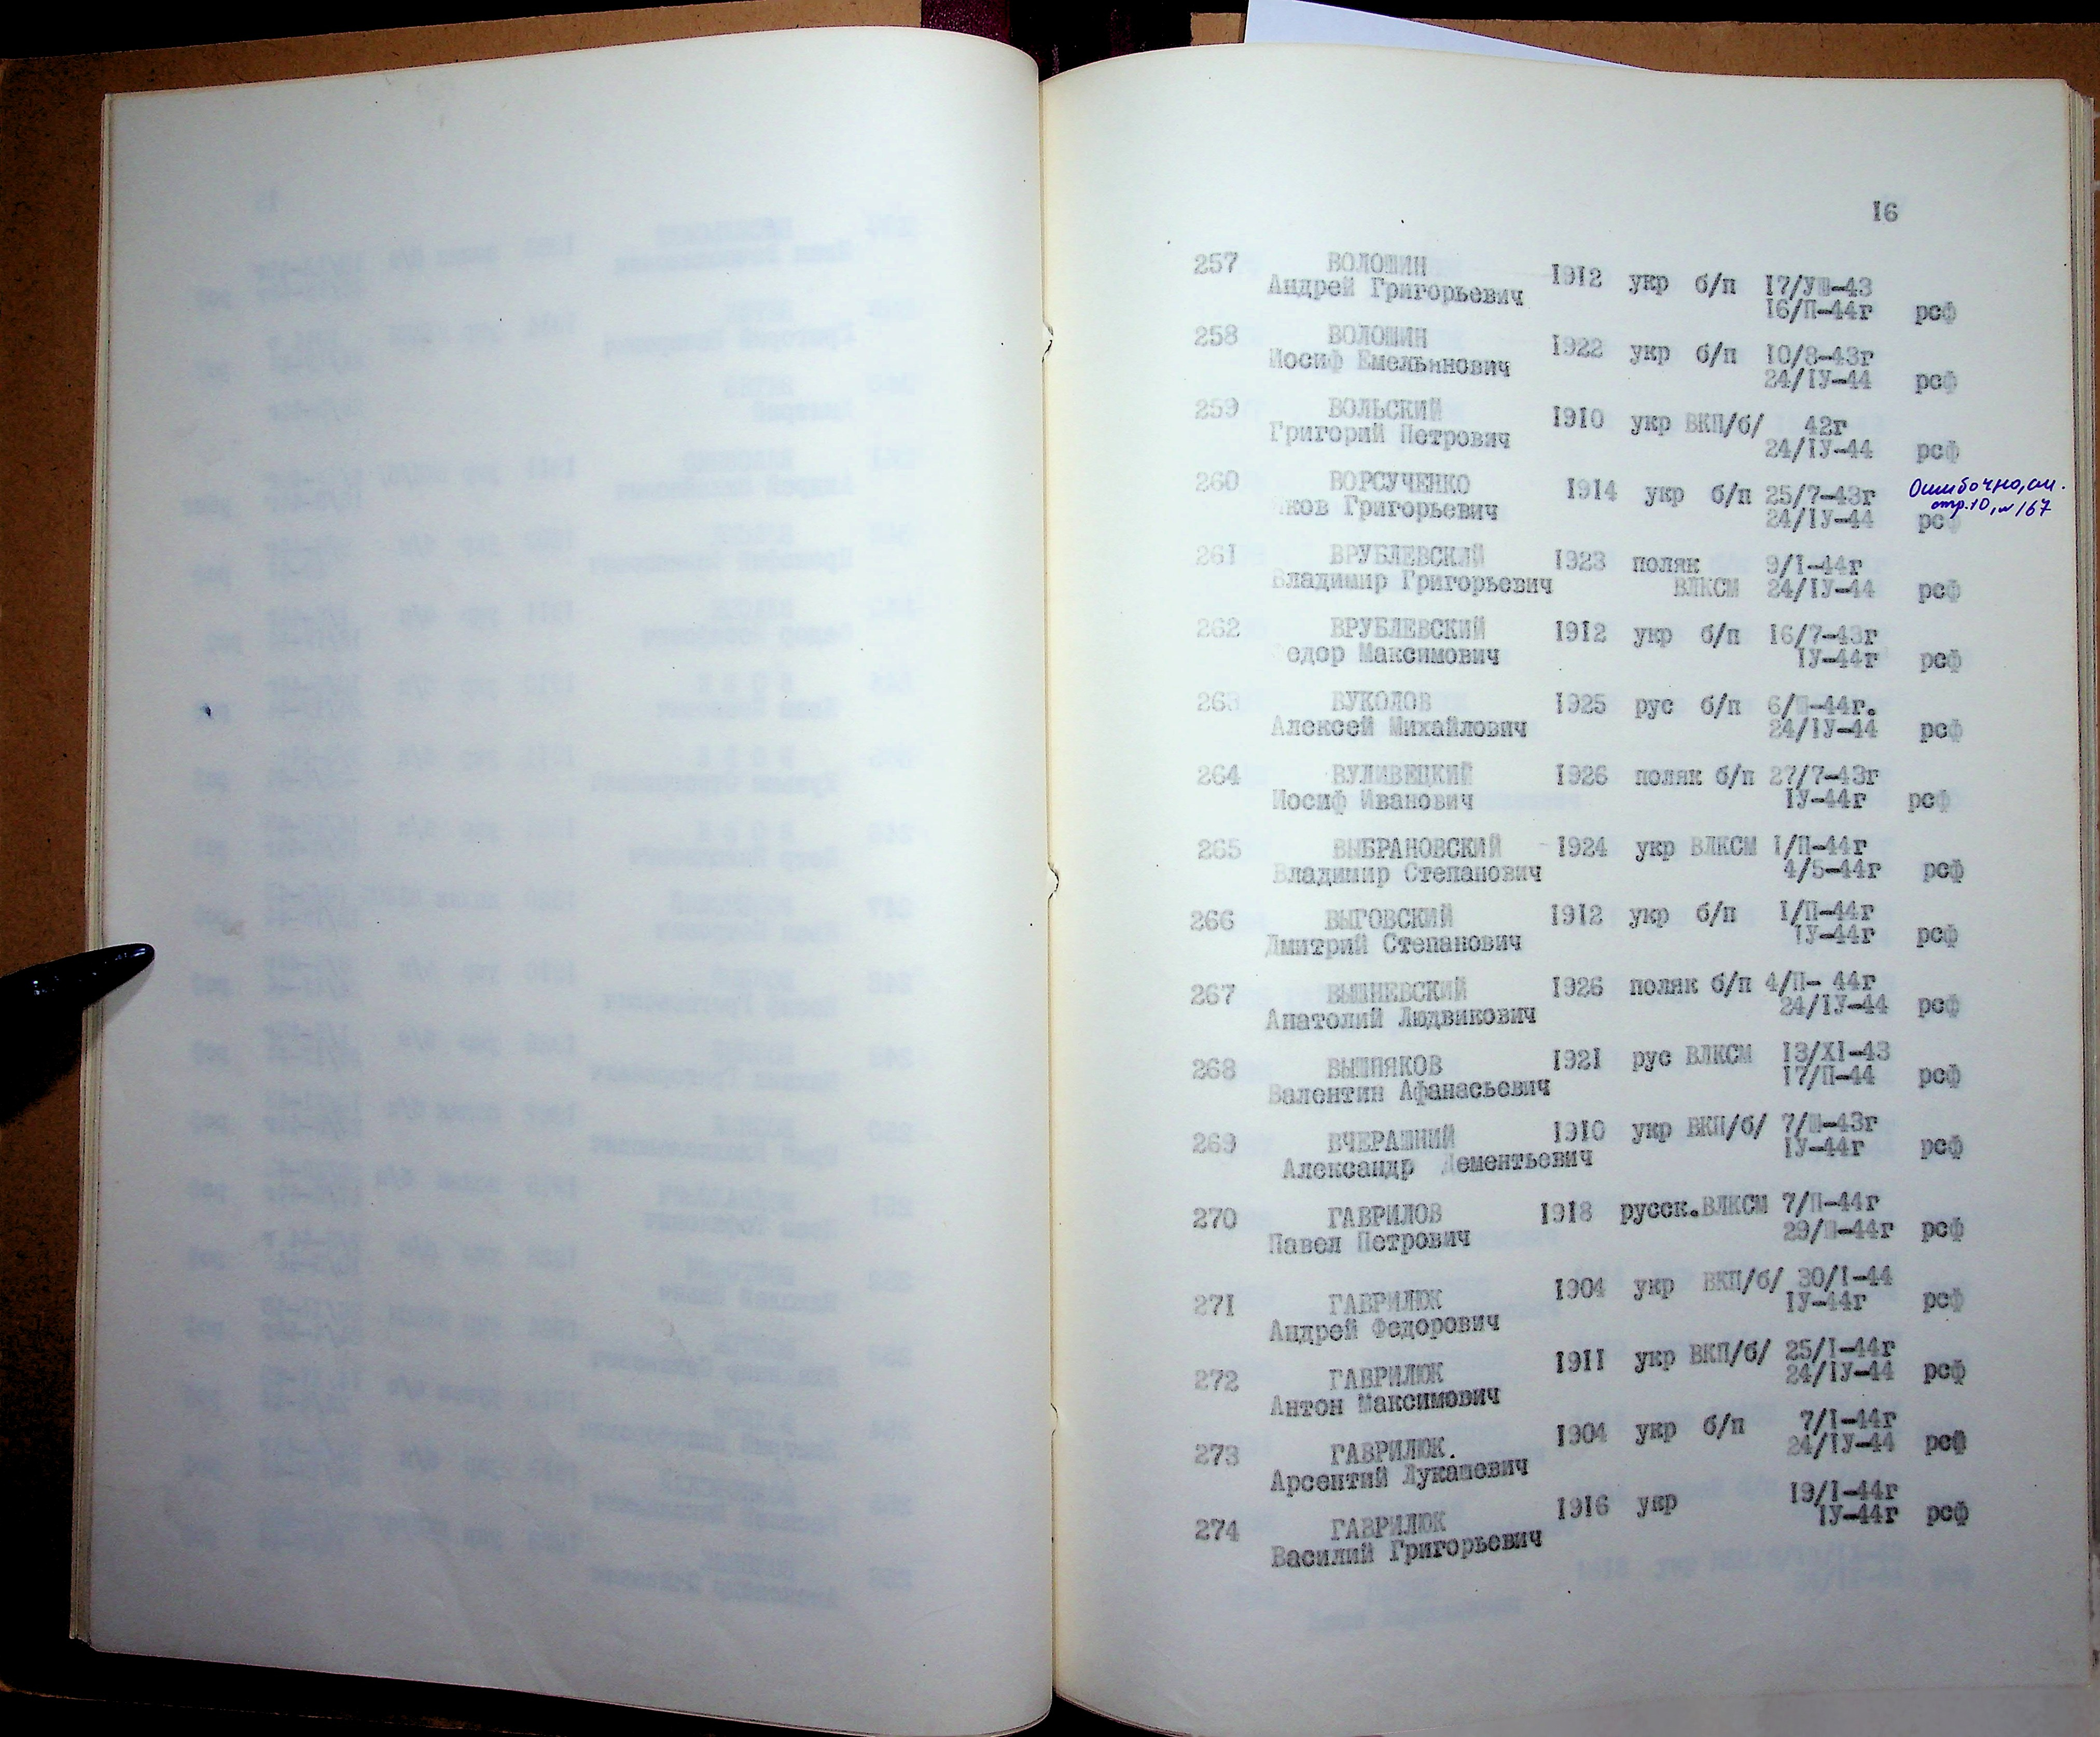 16
257 ВОЛОШИН 1912 укр б/п 17/УШ-43
Андрей Григорьевич 16/П-44г рсф
258 ВОЛОШИН 1922 укр б/п 10/8-43г
Иосиф Емельянович 24/IУ-44 рсф
259 ВОЛЬСКИЙ 1910 укр ВКП/б/ 42г
Григорий Петрович 24/IУ-44 рсф
260 ВОРСУЧЕНКО 1914 укр б/п 25/7-43г Ошибочно, см.
Яков Григорьевич 24/IУ-44 рсф стр.10, № 167
261 ВРУБЛЕВСКИЙ 1923 поляк 9/I-44г
Владимир Григорьевич ВЛКСМ 24/IУ-44 рсф
262 ВРУБЛЕВСКИЙ 1912 укр б/п 16/7-43г
Федор Максимович IУ-44г рсф
263 ВУКОЛОВ 1925 рус б/п 6/Ш-44г.
Алексей Михайлович 24/IУ-44 рсф
264 ВУЛИВЕЦКИЙ 1926 поляк б/п 27/7-43г
Иосиф Иванович IУ-44г рсф
265 ВЫБРАНОВСКИЙ 1924 укр ВЛКСМ 1/П-44г
Владимир Степанович 4/5-44г рсф
266 ВЫГОВСКИЙ 1912 укр б/п 1/П-44г
Дмитрий Степанович IУ-44г рсф
267 ВЫШНЕВСКИЙ 1926 поляк б/п 4/П- 44г
Анатолий Людвикович 24/IУ-44 рсф
268 ВЫШНЯКОВ 1921 рус ВЛКСМ 13/XI-43
Валентин Афанасьевич 17/П-44 рсф
269 ВЧЕРАШНИЙ 1910 укр ВКП/б/ 7/Ш-43г
Александр Дементьевич IУ-44г рсф
270 ГАВРИЛОВ 1918 русск.ВЛКСМ 7/П-44г
Павел Петрович 29/Ш-44г рсф
271 ГАВРИЛЮК 1904 укр ВКП/б/ 30/I-44
Андрей Федорович IУ-44г рсф
272 ГАВРИЛЮК 1911 укр ВКП/б/ 25/I-44г
Антон Максимович 24/IУ-44 рсф
273 ГАВРИЛЮК. 1904 укр б/п 7/I-44г
Арсентий Лукашевич 24/IУ-44 рсф
274 ГАВРИЛЮК 1916 укр 19/I-44г
Василий Григорьевич IУ-44г рсф